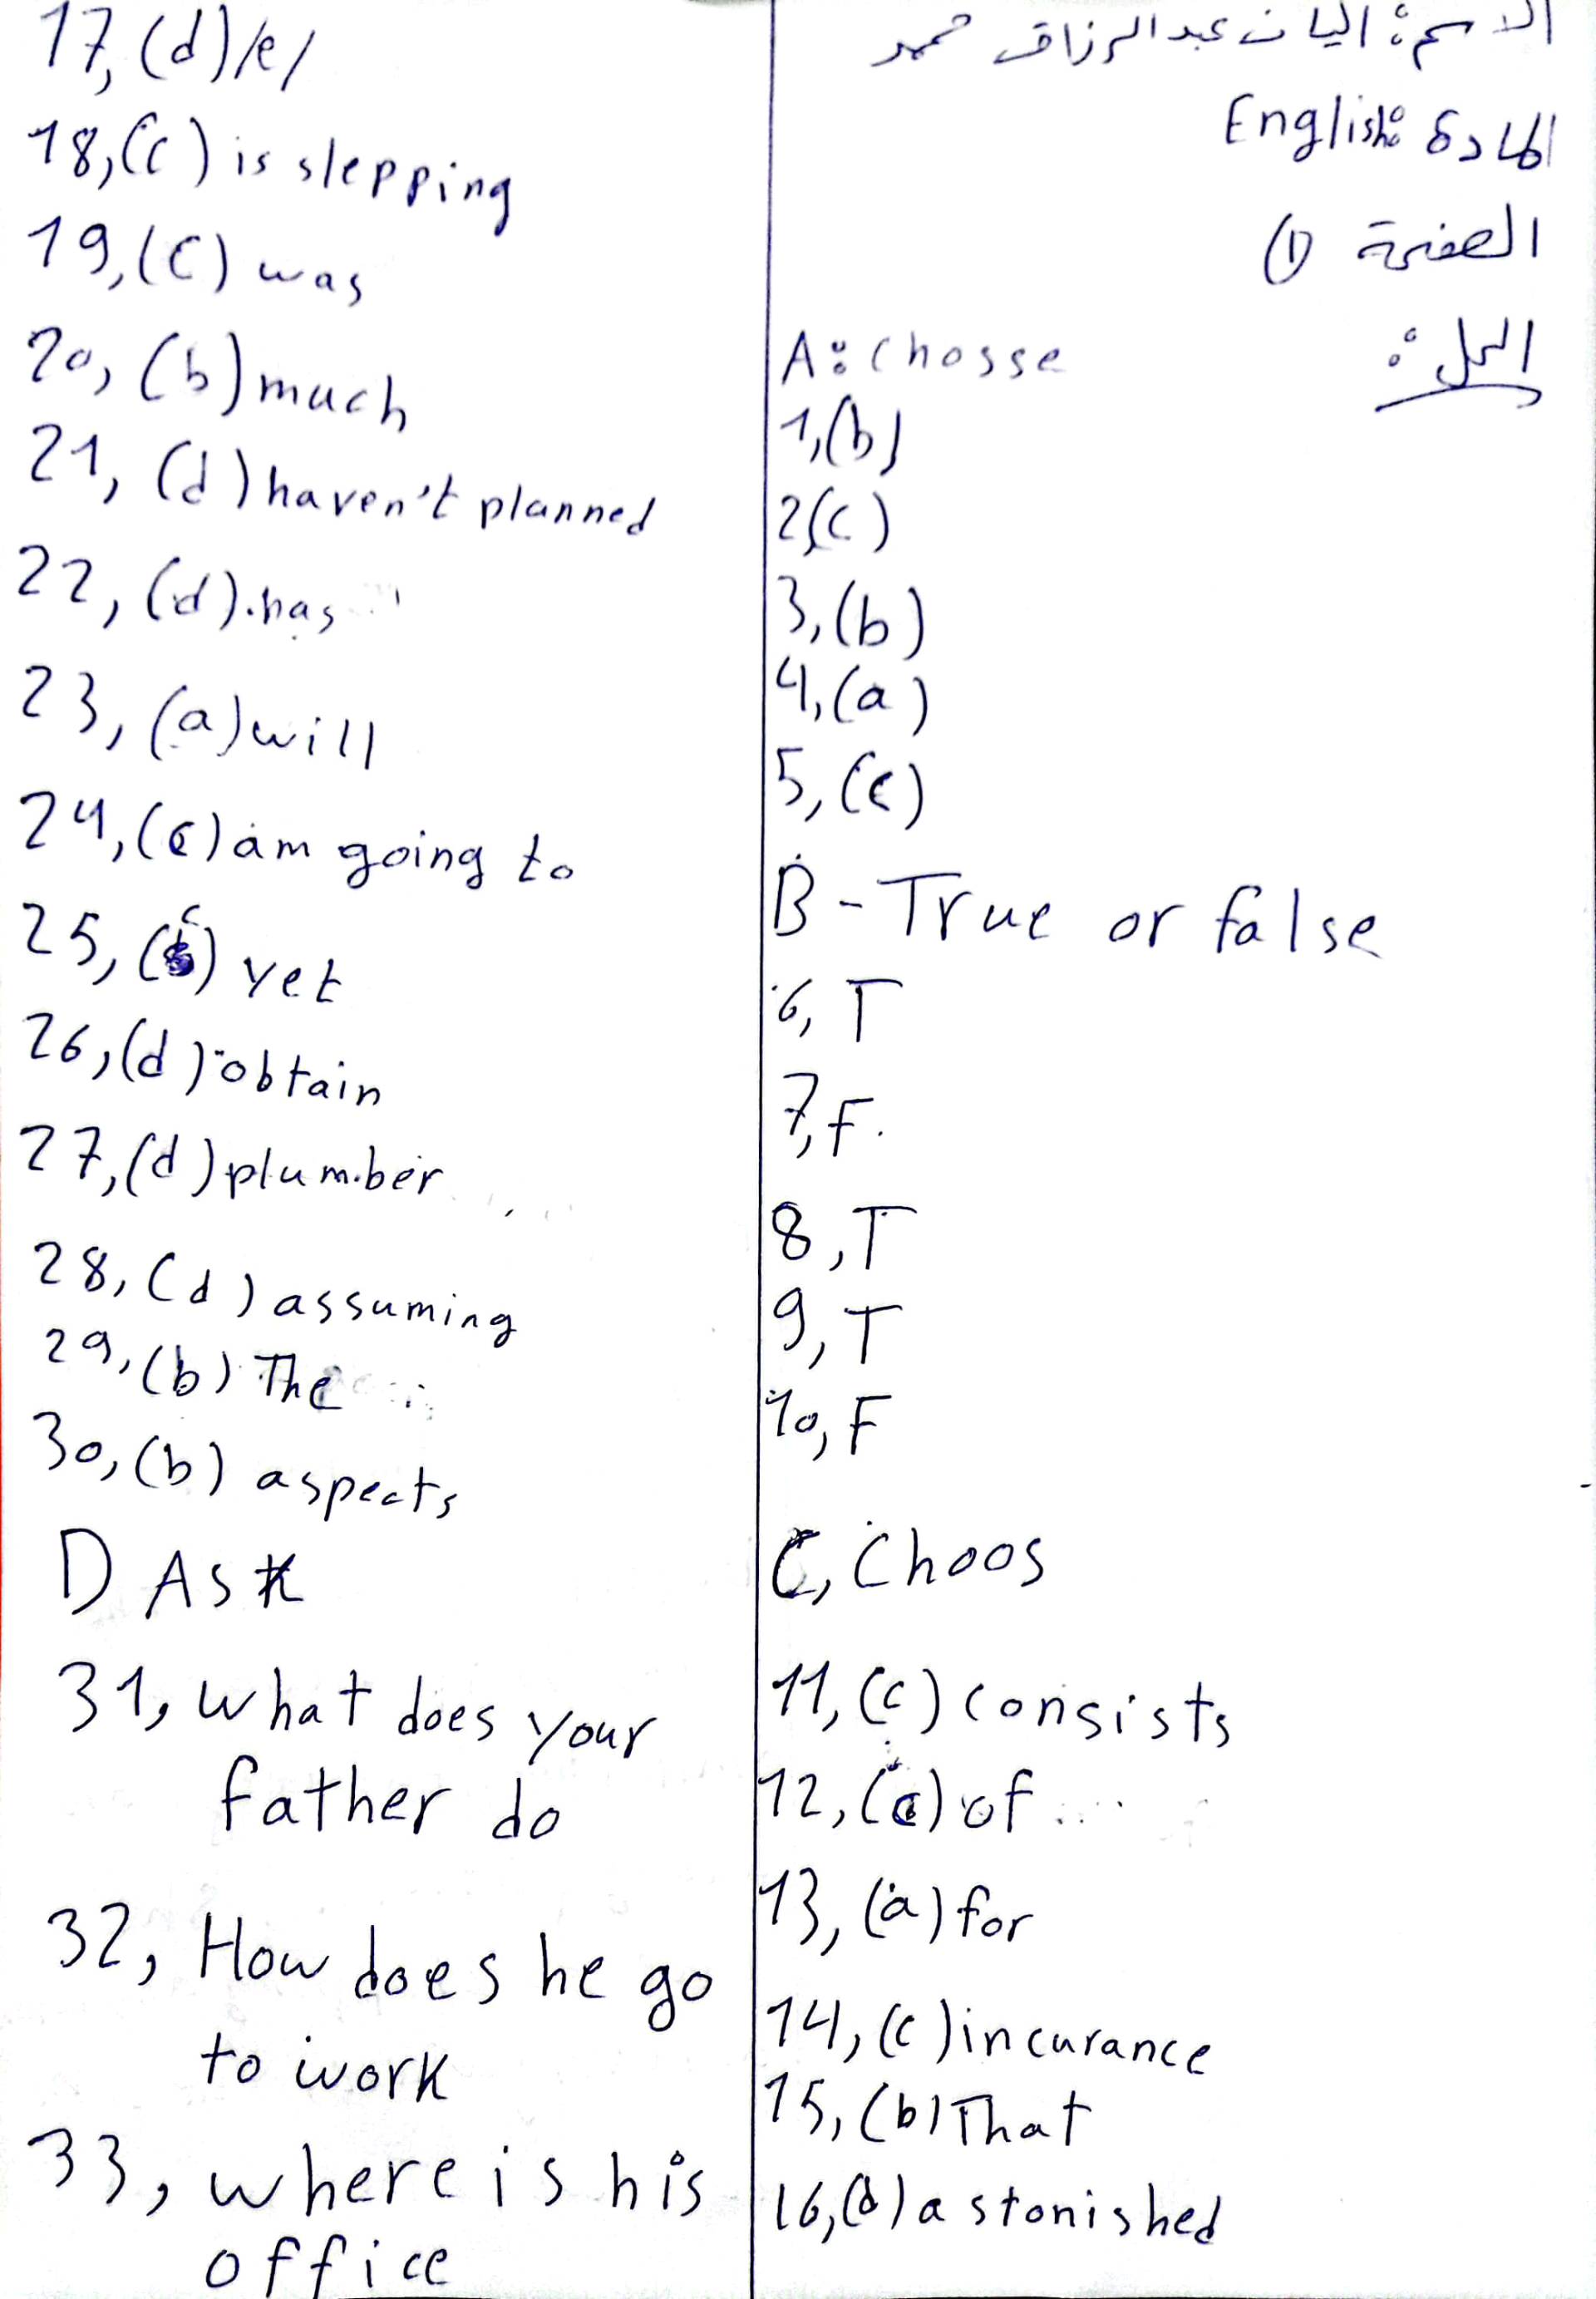 الاسم: اليان عبد الرزاق محمد
المادة: English
الصفحة (1)
الحل:
A: chosse
1,(b)
2,(c)
3,(b)
4,(a)
5,(c)
B - True or false
6, T
7, F.
8, T
9, T
10, F
C, Choos
11, (c) consists
12, (c) of
13, (a) for
14, (c) incurance
15, (b) That
16, (d) astonished
17, (d) /e/
18, (c) is slepping
19, (c) was
20, (b) much
21, (d) haven't planned
22, (d) has
23, (a) will
24, (c) am going to
25, (c) yet
26, (d) obtain
27, (d) plumber
28, (d) assuming
29, (b) The
30, (b) aspects
D Ask
31, what does your
father do
32, How does he go
to work
33, where is his
office